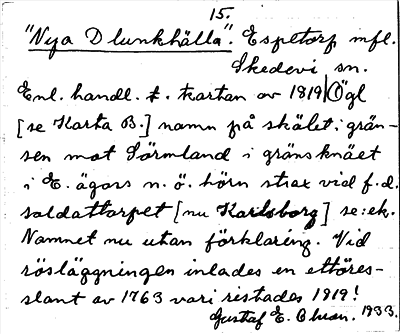 15.
"Nya Dlunkhälla". Espetorp mfl.
Skedevi sn.
Enl. handl. t. kartan av 1819 Ögl
[se Karta B.] namn på skälet i grän-
sen mot Sörmland i gränsknäet
i E. ägors n. ö. hörn strax vid f.d.
soldattorpet [nu Karlsborg] se: ek.
Namnet nu utan förklaring. Vid
rösläggningen inlades en ettöres-
slant av 1763 vari ristades 1919!
Gustaf E. 1933.